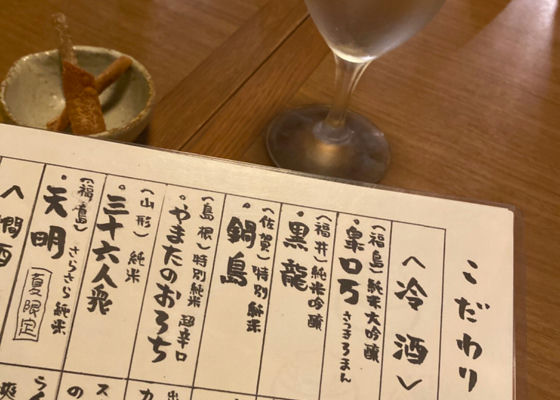 こだわり
〈冷酒〉
(福島)純米大吟醸
・皐ロ万 さつきろまん
(福井)純米吟醸
・黒龍
(佐賀)特別純米
・鍋島
(島根)特別純米 超辛口
・やまたのおろち
(山形)純米
・三十六人衆
(福島)さらさら純米
・天明 夏限定
〈燗酒